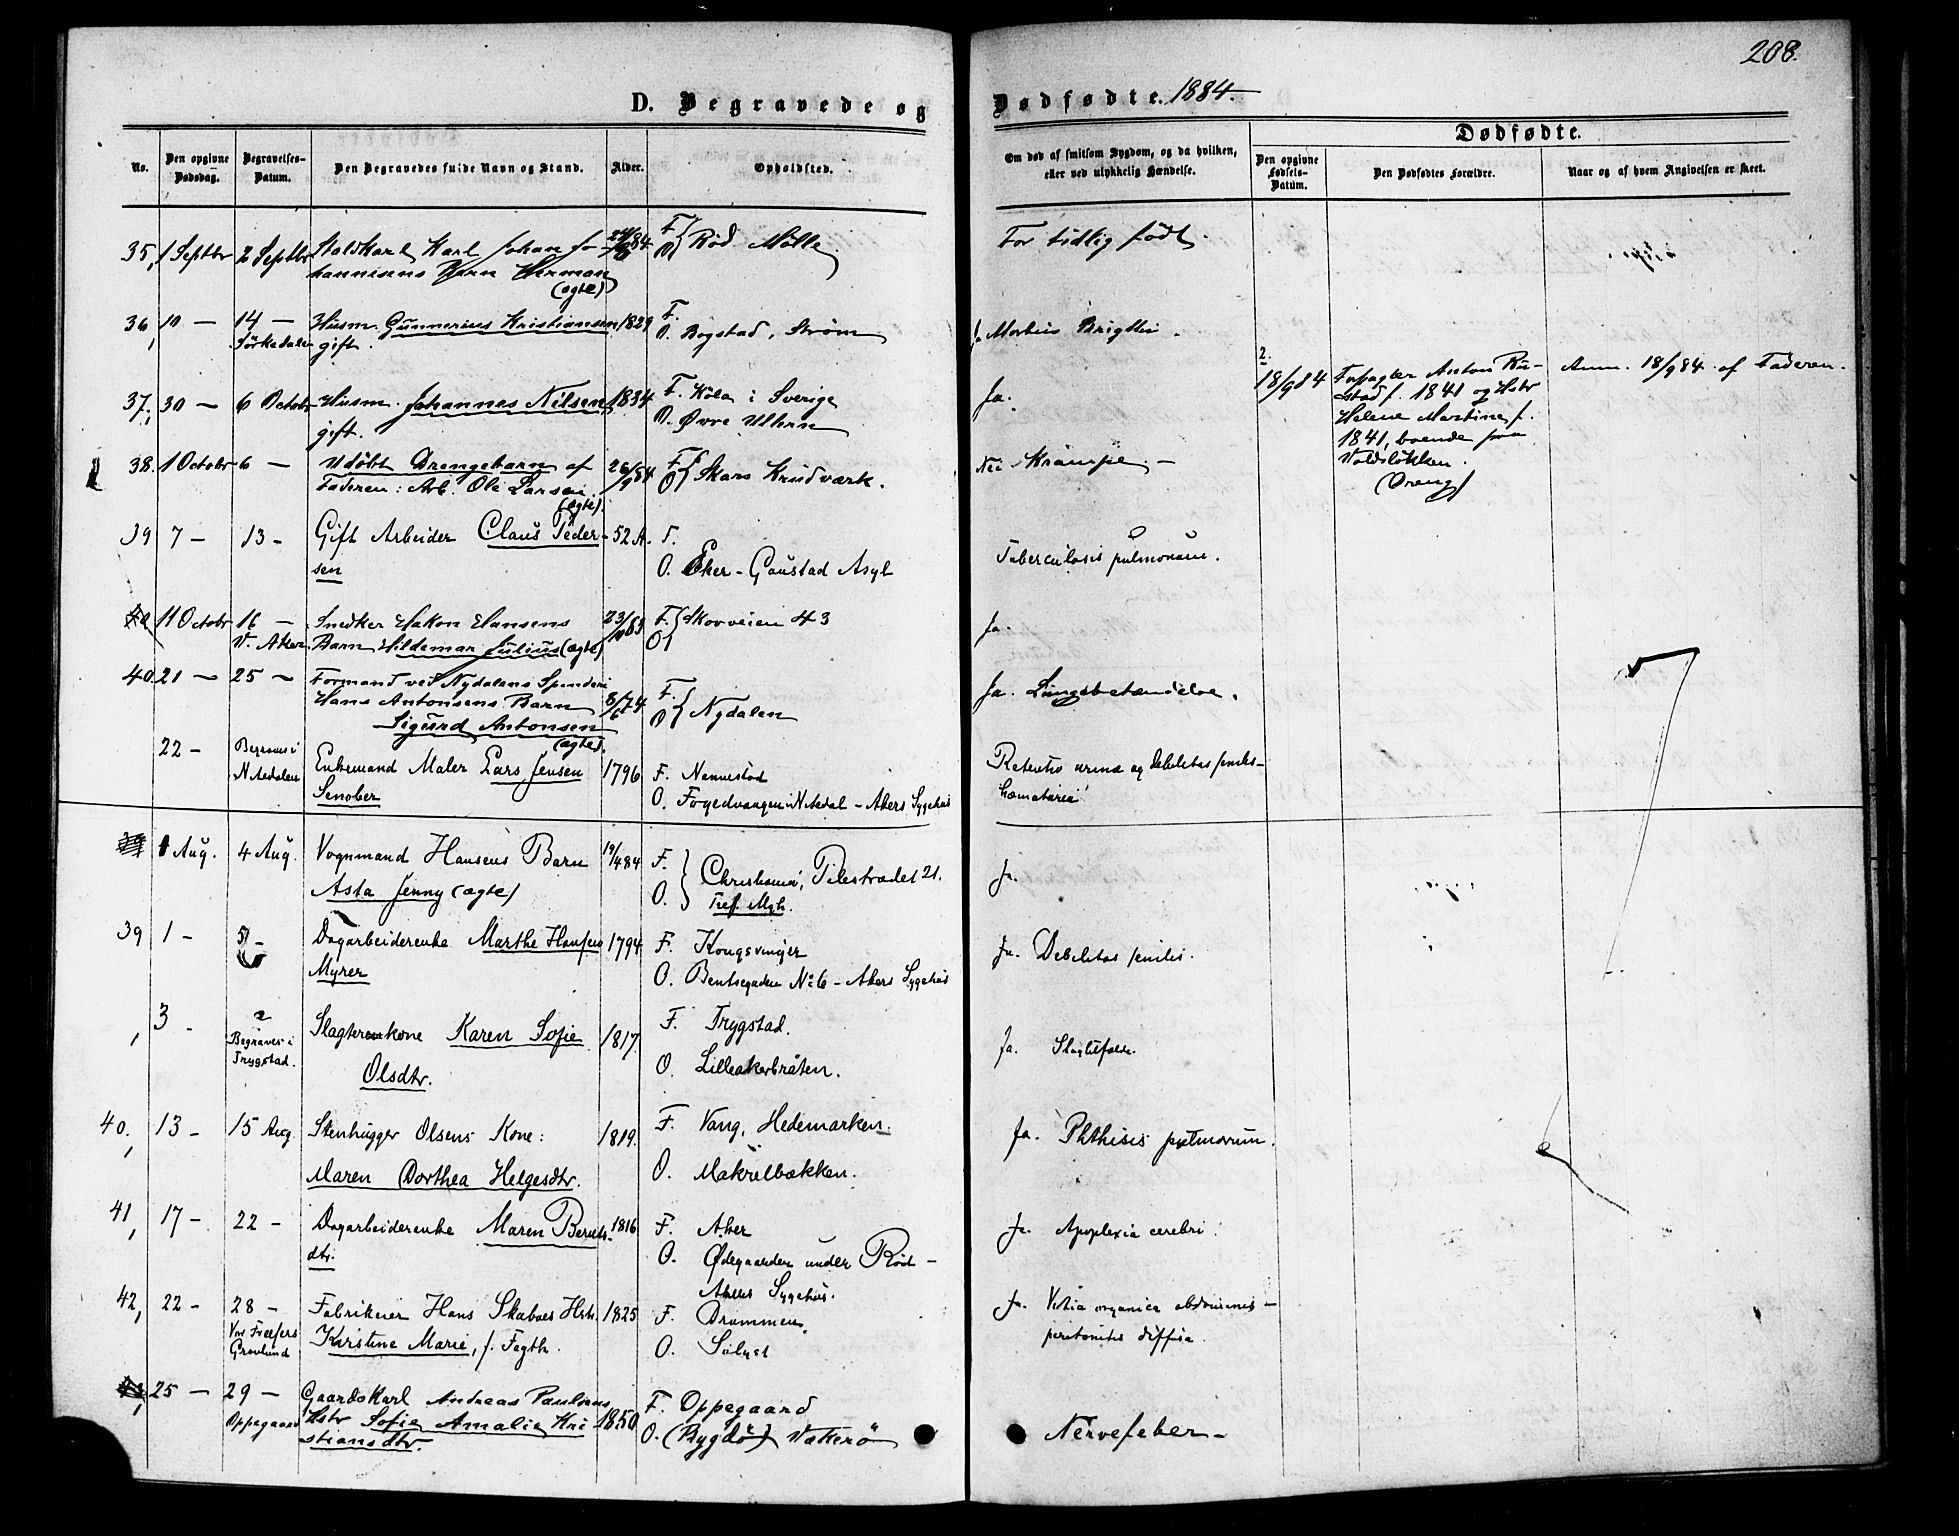 208.
D. Begravede og Dødfødte. 1884.
No.
Den opgivne Dødsdag.
Begravelses-Datum.
Den Begravedes fulde Navn og Stand.
Alder.
Opholdsted.
Om død af smitsom Sygdom, og da hvilken, eller ved ulykkelig Hændelse.
Dødfødte.
Den opgivne Fødsels-Datum.
Den Dødfødtes Forældre.
Naar og af hvem Angivelsen er skeet.
35, 1 Septbr 2 Septbr Staldkarl Karl Johan Jo- F. Rød Mølle For tidlig født.
hannesens Barn Herman O.
(ægte)
36, 10 — 14 — Husm. Gunnerius Kristiansen 1829 F. Morbus Brigthii.
Sørkedalen gift. O. Bogstad, Strøm
37, 30 — 6 Octobr Husm. Johannes Nilsen 1834 F. Köla i Sverige Ja.
gift. O. Øvre Ullern
2.
18/9 84 Forpagter Anton Ru- Anm. 18/9 84 af Faderen.
stad f. 1841 og Hstr
Helene Martine f.
1841, boende paa
Voldsløkken.
(Dreng)
38. 1 Octobr 6 — Udøbt Drengebarn af 26/9 84 F. Skars Krudværk. Nei. Krampe. —
Faderen: Arb. Ole Larsen. O.
(ægte).
39 7 — 13 - Gift Arbeider Claus Peder- 52 A. F. Tuberculosis pulmonum.
sen O. Eker - Gaustad Asyl
11 Octobr 16 — Snedker Hakon Hansens F. Skovveien 43 Ja.
V. Aker Barn Hildemar Julius (ægte) O.
40. 21 — 25 — Formand ved Nydalens Spinderi Ja. Lungebetændelse.
Hans Antonsens Barn 8/6 74 F. Nydalen
Sigurd Antonsen O.
(ægte).
22 - Begraves i Enkemand Maler Lars Jensen 1796 F. Nannestad Retentio urinæ og debilitas senilis -
Nitedalen Senober O. Fogedvangen i Nitedal - Akers Sygehus hæmaturia
1 Aug. 4 Aug. Vognmand Hansens Barn 19/4 84 F. Christiania, Pilestrædet 21. Ja.
Asta Jenny (ægte) O.
39 1 - 5 - Dagarbeiderenke Marthe Hansen 1794 F. Kongsvinger Ja. Debilitas senilis.
Myrer O. Bentsegaden No 6 - Akers Sygehus
3 - Begraves i Slagterenkone Karen Sofie 1817. F. Trygstad. Ja. Slagtilfælde.
Trygstad. Olsdtr. O. Lilleakerbråten.
40, 13 - 15 Aug. Stenhugger Olsens Kone: 1819. F. Vang, Hedemarken. Ja. Phthisis pulmonum.
Maren Dorthea Helgesdtr. O. Makrelbækken.
41, 17 - 22 - Dagarbeiderenke Maren Bernts- 1816 F. Aker Ja. Apoplexia cerebri.
dtr. O. Ødegaarden under Rød -
Akers Sygehus.
42, 22 - 28 - Fabrikeier Hans Skaboes Hstr. 1825 F. Drammen Ja. Vitia organica abdominis -
Vor Frelsers Kirstine Marie, f. Fegth. O. Solyst peritonitis diffusa.
Gravlund
25 — 29 — Gaardskarl Andreas Paulsens F. Oppegaard Nervefeber -
Oppegaard Hstr Sofie Amalie Kri- 1850 O. (Bygdö) Vækerö
stiansdtr.